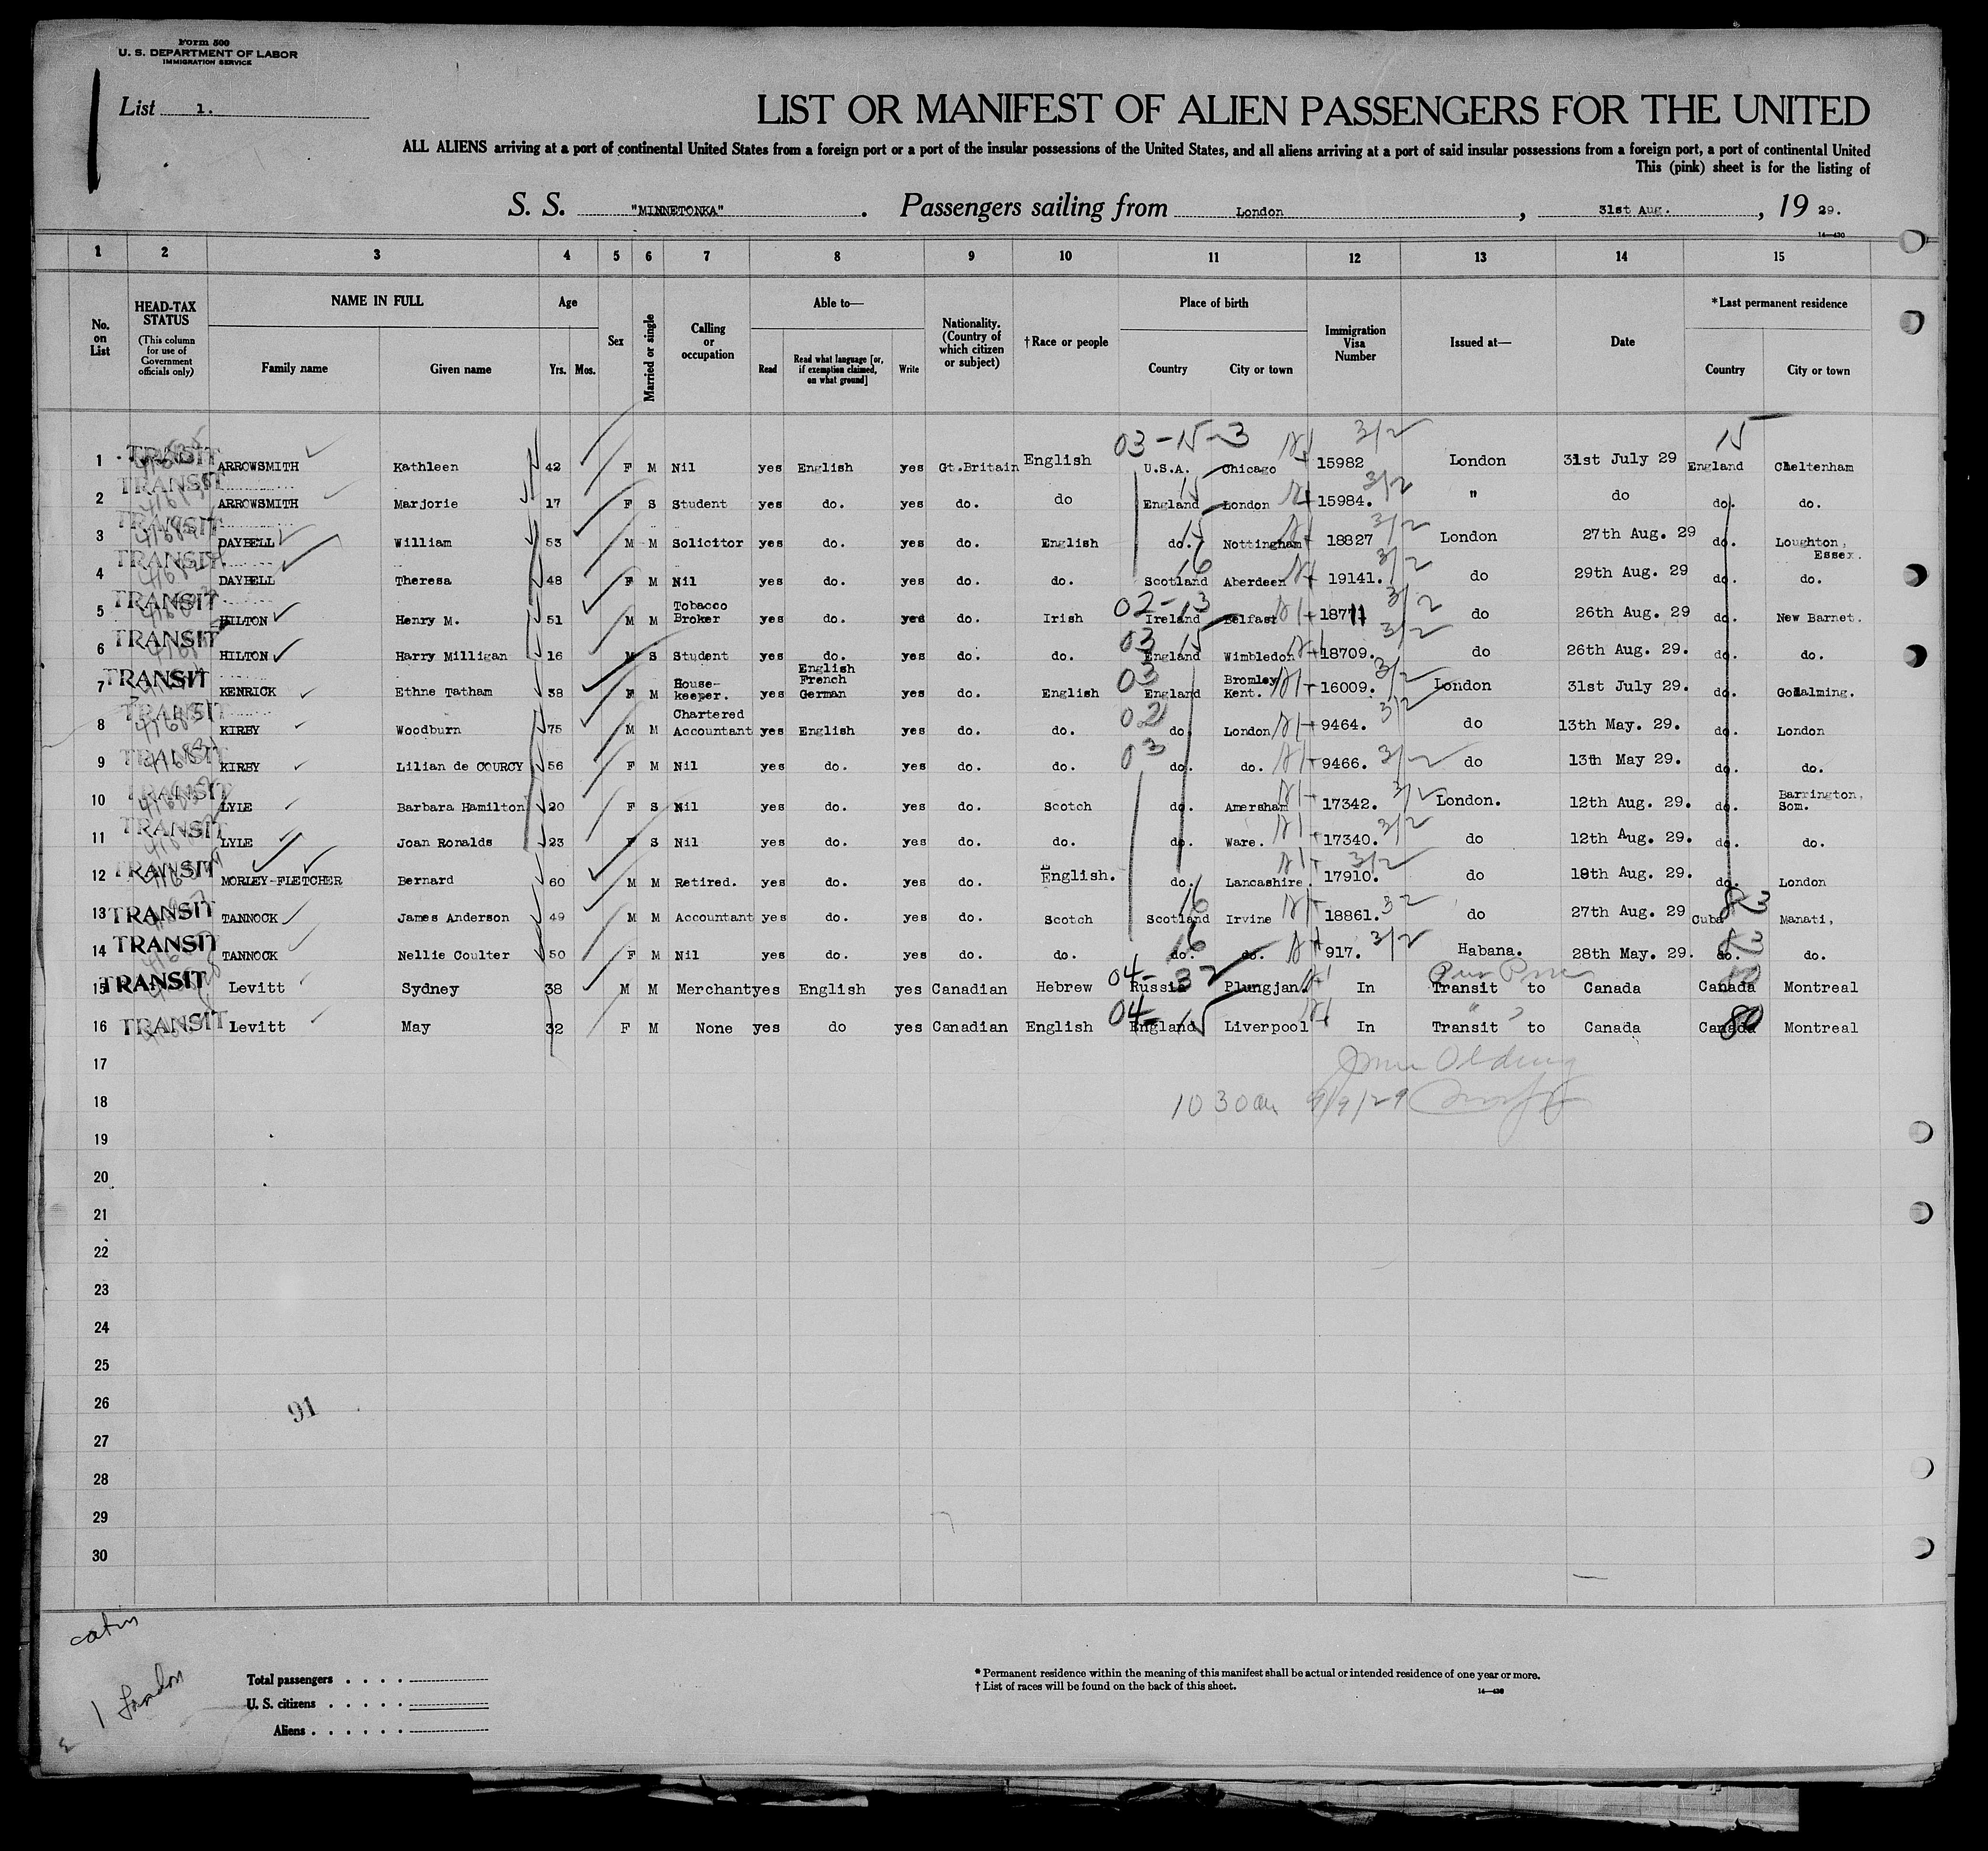 Form 500
U. S. DEPARTMENT OF LABOR
IMMIGRATION SERVICE
List 1.
LIST OR MANIFEST OF ALIEN PASSENGERS FOR THE UNITED
ALL ALIENS arriving at a port of continental United States from a foreign port or a port of the insular possessions of the United States, and all aliens arriving at a port of said insular possessions from a foreign port, a port of continental United
This (pink) sheet is for the listing of
S. S. "MINNETONKA". Passengers sailing from London, 31st Aug., 19 29.
14—430
1 2 3 4 5 6 7 8 9 10 11 12 13 14 15
No. on List
HEAD-TAX STATUS (This column for use of Government officials only)
NAME IN FULL Family name Given name
Age Yrs. Mos.
Sex
Married or single
Calling or occupation
Able to— Read Read what language [or, if exemption claimed, on what ground] Write
Nationality. (Country of which citizen or subject)
†Race or people
Place of birth Country City or town
Immigration Visa Number
Issued at—
Date
*Last permanent residence Country City or town
03-15-3 3/2 15
1 TRANSIT ARROWSMITH Kathleen 42 F M Nil yes English yes Gt.Britain English U.S.A. Chicago 15982 London 31st July 29 England Cheltenham
2 TRANSIT ARROWSMITH Marjorie 17 F S Student yes do. yes do. do England 15 London 15984. 3/2 " do do. do.
3 TRANSIT DAYBELL William 53 M M Solicitor yes do. yes do. English do. 15 Nottingham 18827 3/2 London 27th Aug. 29 do. Loughton, Essex.
4 TRANSIT DAYBELL Theresa 48 F M Nil yes do. yes do. do. Scotland 16 Aberdeen 19141. 3/2 do 29th Aug. 29 do. do.
5 TRANSIT HILTON Henry M. 51 M M Tobacco Broker yes do. yes do. Irish 02-13 Ireland Belfast 18711 3/2 do 26th Aug. 29 do. New Barnet.
6 TRANSIT HILTON Harry Milligan 16 M S Student yes do. yes do. do. 03 15 England Wimbledon 18709. 3/2 do 26th Aug. 29. do. do.
7 TRANSIT KENRICK Ethne Tatham 38 F M House-keeper. yes English French German yes do. English 03 England Bromley Kent. 16009. 3/2 London 31st July 29. do. Godalming.
8 TRANSIT KIRBY Woodburn 75 M M Chartered Accountant yes English yes do. do. 02 do London 9464. 3/2 do 13th May. 29. do. London
9 TRANSIT KIRBY Lilian de COURCY 56 F M Nil yes do. yes do. do. 03 do. do. 9466. 3/2 do 13th May 29. do. do.
10 TRANSIT LYLE Barbara Hamilton 20 F S Nil yes do. yes do. Scotch do. Amersham 17342. 3/2 London. 12th Aug. 29. do. Barrington, Som.
11 TRANSIT LYLE Joan Ronalds 23 F S Nil yes do. yes do. do. do. Ware. 17340. 3/2 do 12th Aug. 29. do. do.
12 TRANSIT MORLEY-FLETCHER Bernard 60 M M Retired. yes do. yes do. English. do. Lancashire. 17910. 3/2 do 19th Aug. 29. do. London
13 TRANSIT TANNOCK James Anderson 49 M M Accountant yes do. yes do. Scotch Scotland 16 Irvine 18861. 32 do 27th Aug. 29 Cuba 83 Manati,
14 TRANSIT TANNOCK Nellie Coulter 50 F M Nil yes do. yes do. do. do. 16 do. 917. 3/2 Habana. 28th May. 29. do. 83 do.
15 TRANSIT Levitt Sydney 38 M M Merchant yes English yes Canadian Hebrew 04-32 Russia Plungjan. In Transit to Canada Canada 80 Montreal
16 TRANSIT Levitt May 32 F M None yes do yes Canadian English 04-15 England Liverpool In Transit to Canada Canada 80 Montreal
17
18 10 30 am 9/9/29
19
20
21
22
23
24
25
26 91
27
28
29
30
1 London
Total passengers
U. S. citizens
Aliens
* Permanent residence within the meaning of this manifest shall be actual or intended residence of one year or more.
† List of races will be found on the back of this sheet.
14—430